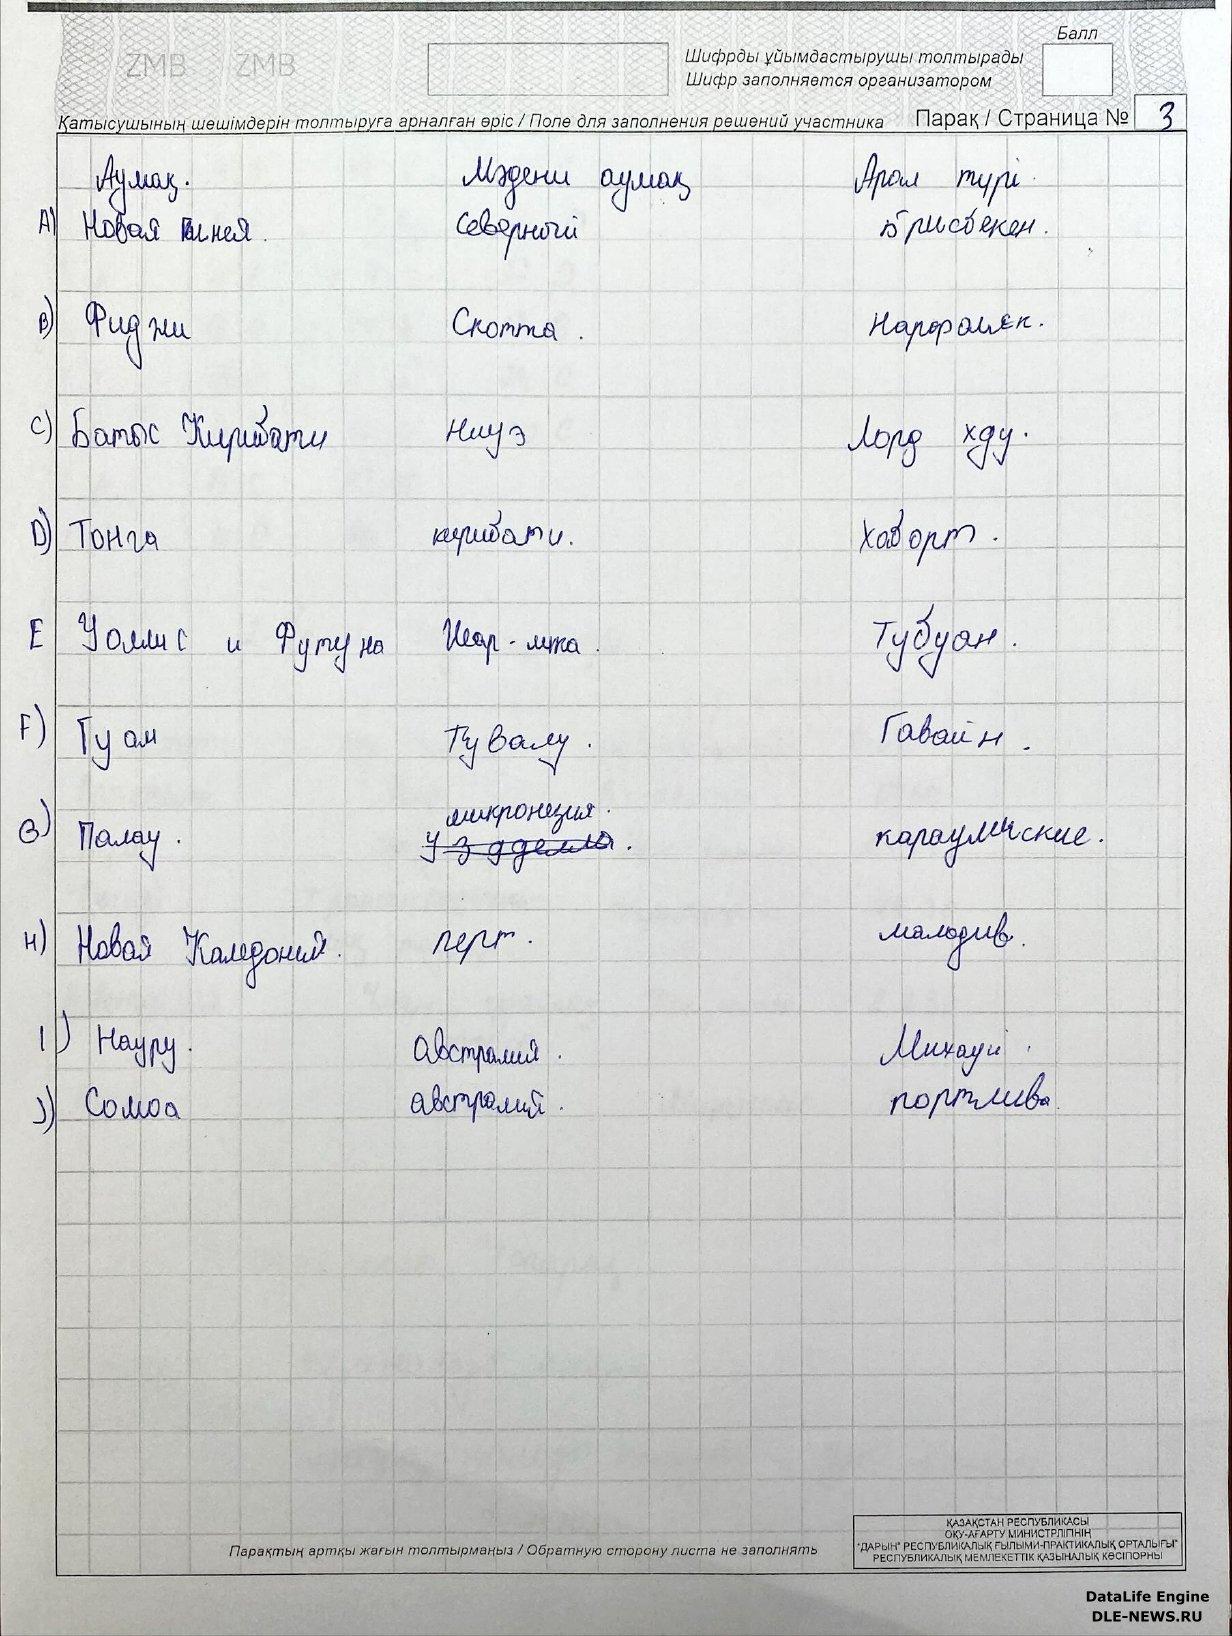 ZMB ZMB
Балл
Шифрды ұйымдастырушы толтырады
Шифр заполняется организатором
Қатысушының шешімдерін толтыруға арналған өріс / Поле для заполнения решений участника Парақ / Страница № 3
Аумақ. Мәдени аумақ Арал түрі
A) Новая Гинея. Северной Брисбекен.
B) Фиджи Скотта. Нарфольк.
C) Батыс Кирибати Ниуэ Лорд хду.
D) Тонга кирибати. Хоборт.
E Уоллис и Футуна Тубуан.
F) Гуам Тувалу. Гавайн.
микронезия.
G) Палау.
H) Новая Каледоний. перт. малодив.
I) Науру. Австралия.
J) Сомоа австралий. портлива
Парақтың артқы жағын толтырмаңыз / Обратную сторону листа не заполнять
ҚАЗАҚСТАН РЕСПУБЛИКАСЫ
ОҚУ-АҒАРТУ МИНИСТРЛІГІНІҢ
"ДАРЫН" РЕСПУБЛИКАЛЫҚ ҒЫЛЫМИ-ПРАКТИКАЛЫҚ ОРТАЛЫҒЫ"
РЕСПУБЛИКАЛЫҚ МЕМЛЕКЕТТІК ҚАЗЫНАЛЫҚ КӘСІПОРНЫ
DataLife Engine
DLE-NEWS.RU